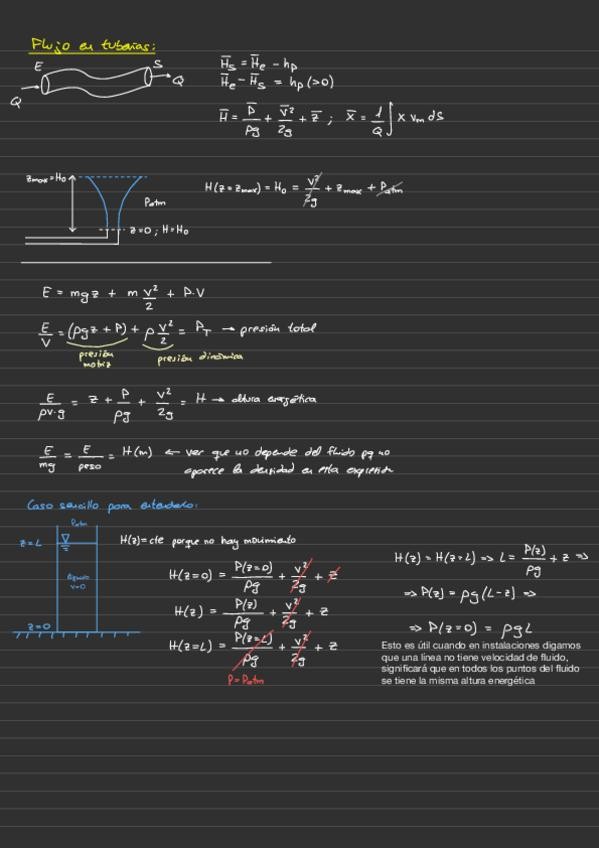 Flujo en tuberías:
E S
Q Q
H̅s = H̅e - hp
H̅e - H̅s = hp (>0)
H̅ = P̅/ρg + v̅²/2g + z̅ ; x̅ = 1/Q ∫ x vm ds
zmax = H0
Patm
z=0 ; H=H0
H(z=zmax) = H0 = v²/2g + zmax + Patm
E = mgz + m v²/2 + P·V
E/V = (ρgz + P) + ρ v²/2 = PT → presión total
presión motriz
presión dinámica
E/ρV·g = z + P/ρg + v²/2g = H → altura energética
E/mg = E/peso = H(m) ← ver que no depende del fluido pq no
aparece la densidad en esta expresión
Caso sencillo para entenderlo:
Patm
z=L
v=0
z=0
H(z)=cte porque no hay movimiento
H(z=0) = P(z=0)/ρg + v²/2g + z
H(z) = P(z)/ρg + v²/2g + z
H(z=L) = P(z=L)/ρg + v²/2g + z
P=Patm
H(z) = H(z=L) => L = P(z)/ρg + z =>
=> P(z) = ρg(L-z) =>
=> P(z=0) = ρgL
Esto es útil cuando en instalaciones digamos
que una línea no tiene velocidad de fluido,
significará que en todos los puntos del fluido
se tiene la misma altura energética